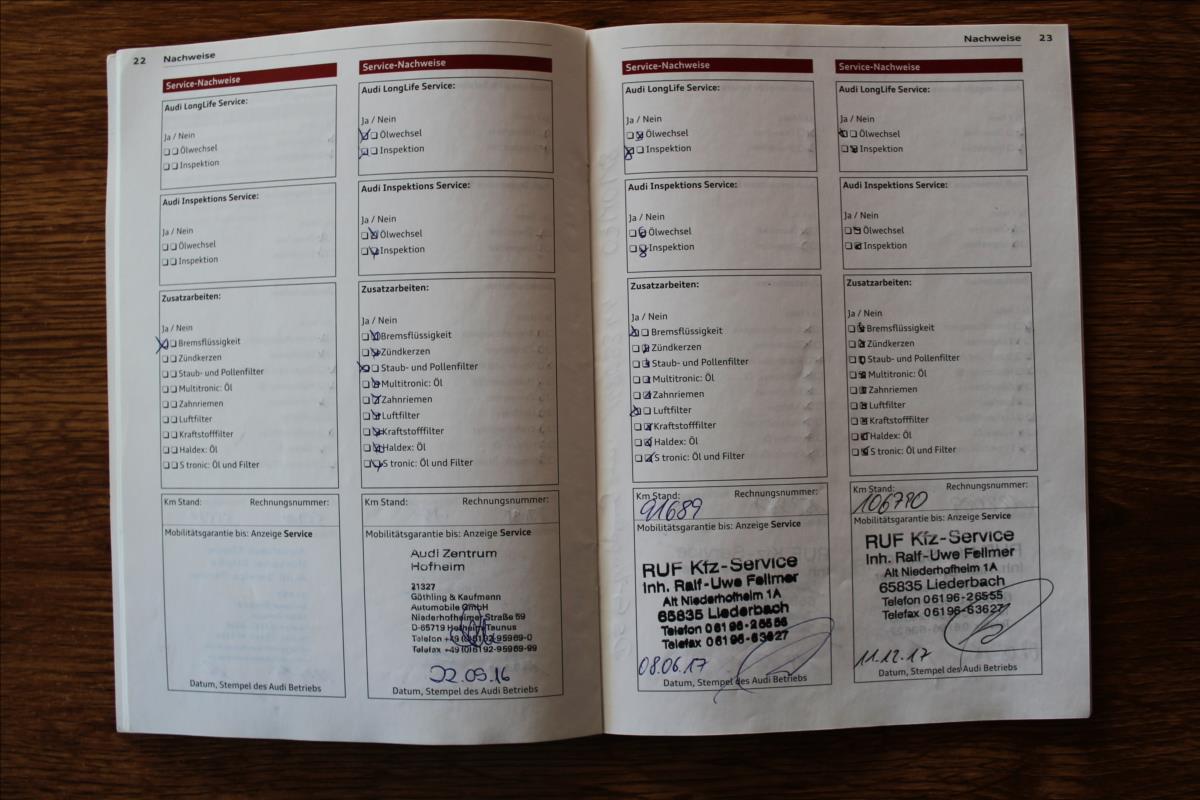 22 Nachweise
Service-Nachweise
Audi LongLife Service:
Ja / Nein
Ölwechsel
Inspektion
Audi Inspektions Service:
Ja / Nein
Ölwechsel
Inspektion
Zusatzarbeiten:
Ja / Nein
Bremsflüssigkeit
Zündkerzen
Staub- und Pollenfilter
Multitronic: Öl
Zahnriemen
Luftfilter
Kraftstofffilter
Haldex: Öl
S tronic: Öl und Filter
Km Stand: Rechnungsnummer:
Mobilitätsgarantie bis: Anzeige Service
Datum, Stempel des Audi Betriebs
Service-Nachweise
Audi LongLife Service:
Ja / Nein
Ölwechsel
Inspektion
Audi Inspektions Service:
Ja / Nein
Ölwechsel
Inspektion
Zusatzarbeiten:
Ja / Nein
Bremsflüssigkeit
Zündkerzen
Staub- und Pollenfilter
Multitronic: Öl
Zahnriemen
Luftfilter
Kraftstofffilter
Haldex: Öl
S tronic: Öl und Filter
Km Stand: Rechnungsnummer:
Mobilitätsgarantie bis: Anzeige Service
Audi Zentrum
Hofheim
21327
Göthling & Kaufmann
Automobile GmbH
Niederhofheimer Straße 59
D-65719 Hofheim/Taunus
Telefon +49 (0)6192-95969-0
Telefax +49 (0)6192-95969-99
22.09.16
Datum, Stempel des Audi Betriebs
Nachweise 23
Service-Nachweise
Audi LongLife Service:
Ja / Nein
Ölwechsel
Inspektion
Audi Inspektions Service:
Ja / Nein
Ölwechsel
Inspektion
Zusatzarbeiten:
Ja / Nein
Bremsflüssigkeit
Zündkerzen
Staub- und Pollenfilter
Multitronic: Öl
Zahnriemen
Luftfilter
Kraftstofffilter
Haldex: Öl
S tronic: Öl und Filter
Km Stand: Rechnungsnummer:
91689
Mobilitätsgarantie bis: Anzeige Service
RUF Kfz-Service
Inh. Ralf-Uwe Fellmer
Alt Niederhofheim 1A
65835 Liederbach
Telefon 06196-26555
Telefax 06196-63627
08.06.17
Datum, Stempel des Audi Betriebs
Service-Nachweise
Audi LongLife Service:
Ja / Nein
Ölwechsel
Inspektion
Audi Inspektions Service:
Ja / Nein
Ölwechsel
Inspektion
Zusatzarbeiten:
Ja / Nein
Bremsflüssigkeit
Zündkerzen
Staub- und Pollenfilter
Multitronic: Öl
Zahnriemen
Luftfilter
Kraftstofffilter
Haldex: Öl
S tronic: Öl und Filter
Km Stand: Rechnungsnummer:
106790
Mobilitätsgarantie bis: Anzeige Service
RUF Kfz-Service
Inh. Ralf-Uwe Fellmer
Alt Niederhofheim 1A
65835 Liederbach
Telefon 06196-26555
Telefax 06196-63627
11.12.17
Datum, Stempel des Audi Betriebs